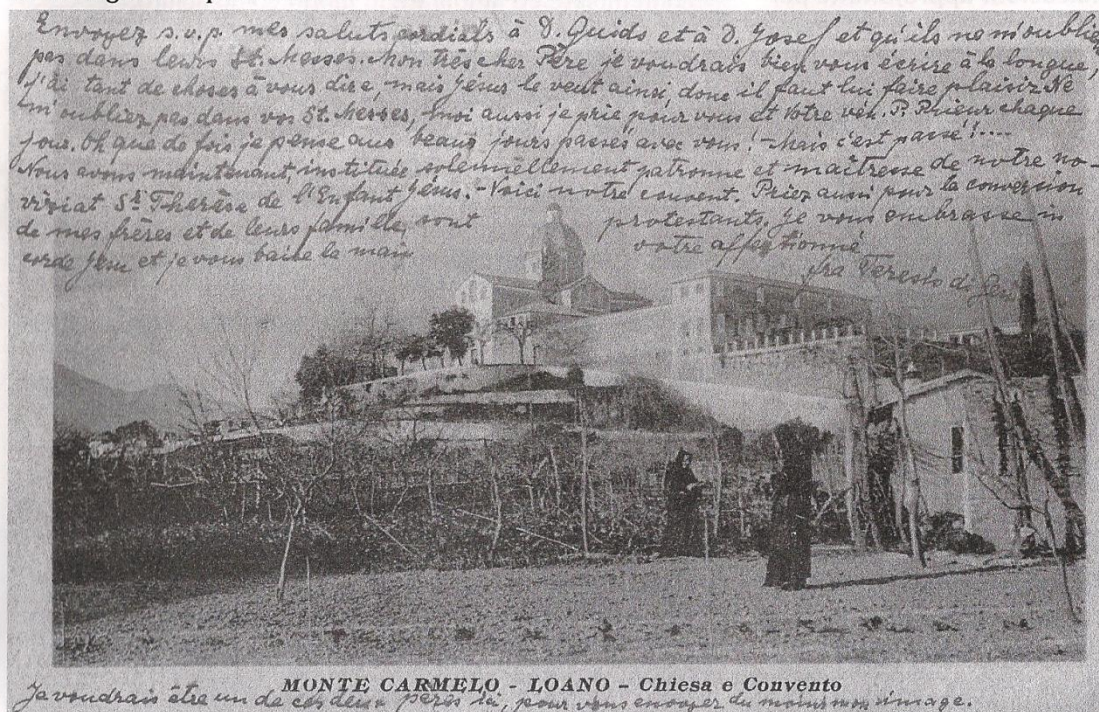 Envoyez s.v.p. mes saluts cordials à D. Guido et à D. Josef et qu'ils ne m'oublient
pas dans leurs St. Messes. Mon très cher Père je voudrais bien vous écrire à la longue,
j'ai tant de choses à vous dire, mais Jésus le veut ainsi, donc il faut lui faire plaisir. Ne
m'oubliez pas dans vos St. Messes, moi aussi je prie pour vous et votre vén. P. Prieur chaque
jour. Oh que de fois je pense aux beaux jours passés avec vous! - Mais c'est passé!....
Nous avons maintenant, instituée solennellement patronne et maîtresse de notre no-
viziat St. Therèse de l'Enfant Jésus. - Voici notre couvent. Priez aussi pour la conversion
de mes frères et de leurs famille, sont protestants. Je vous embrasse in
corde Jesu et je vous baise la main votre affectionné
fra Teresio di Gesù
MONTE CARMELO - LOANO - Chiesa e Convento
Je voudrais être un de ces deux pères là, pour vous envoyer du moins mon image.